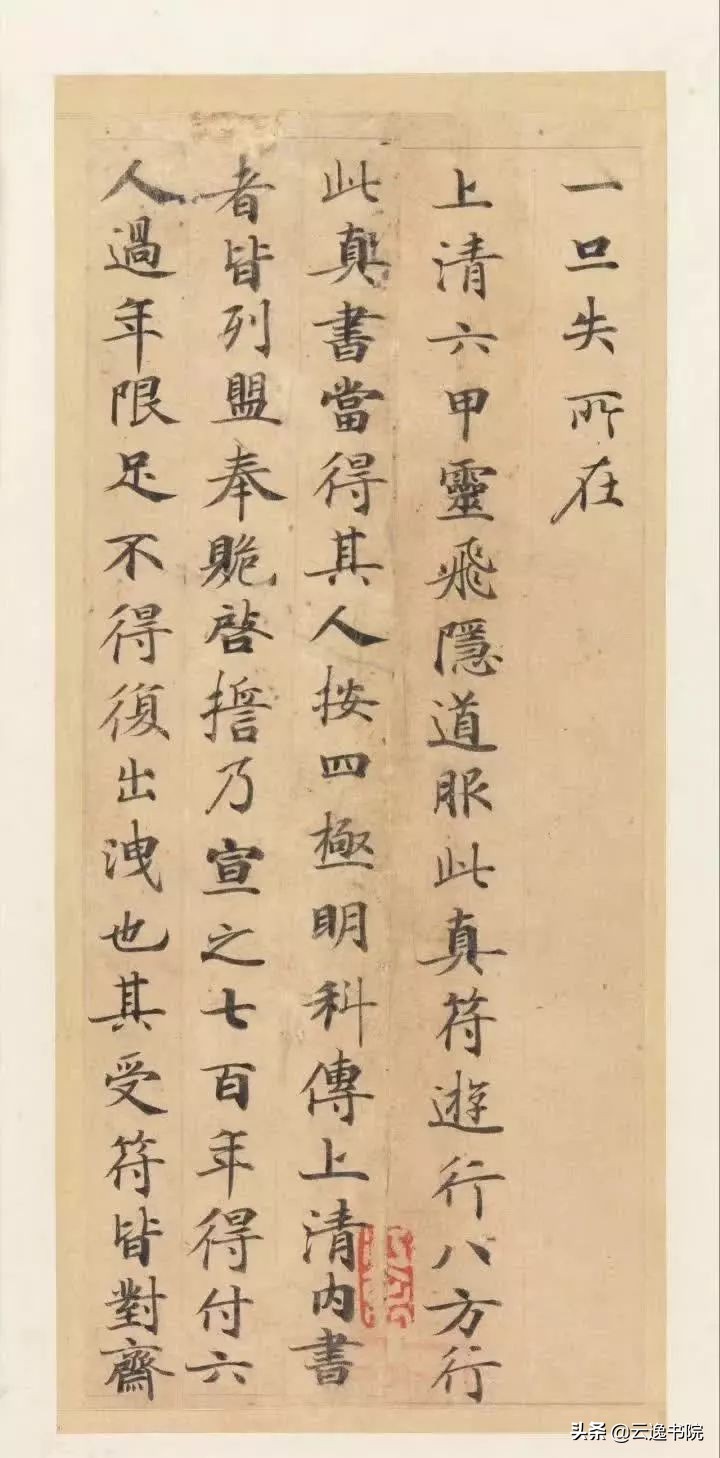 一旦失所在
上清六甲靈飛隱道服此真符遊行八方行
此真書當得其人按四極明科傳上清內書
者皆列盟奉貺啓誓乃宣之七百年得付六
人過年限足不得復出洩也其受符皆對齋
头条 @云逸书院